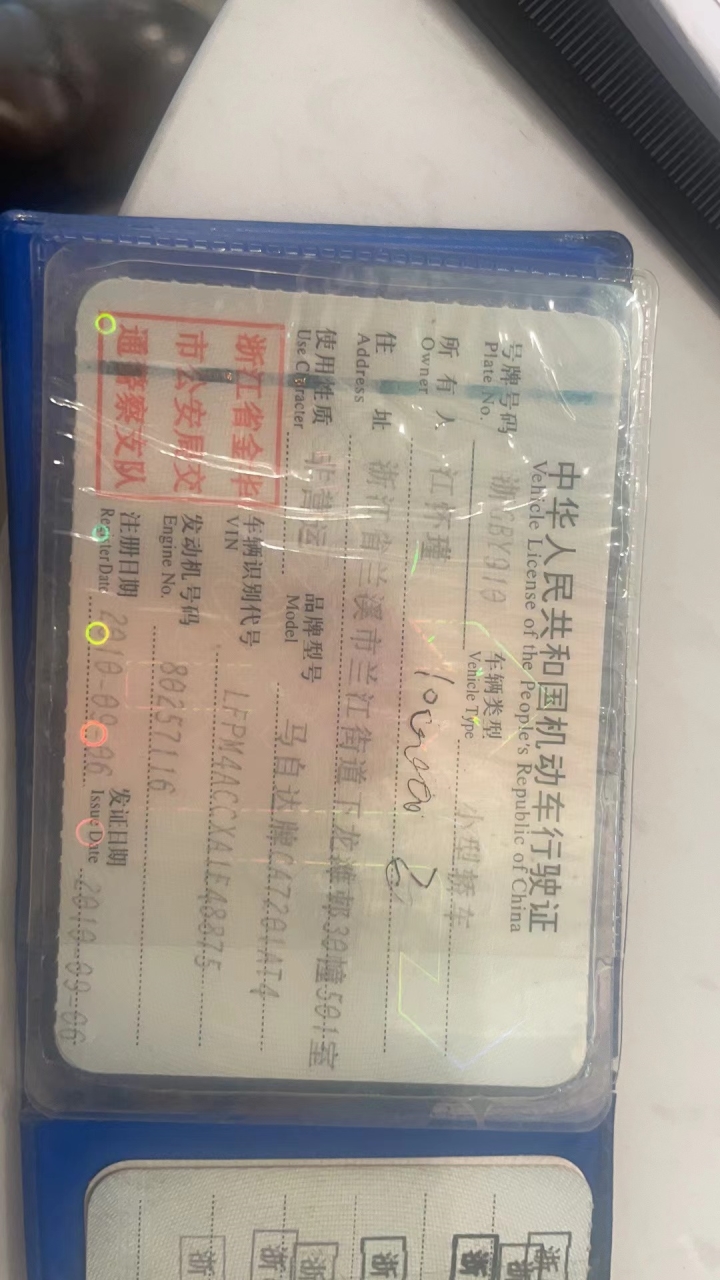 中华人民共和国机动车行驶证
Vehicle License of the People's Republic of China
号牌号码 浙GBY910 车辆类型 小型轿车
Plate No. Vehicle Type
所有人 江怀瑾
Owner
住址 浙江省兰溪市兰江街道下龙滩邨30幢501室
Address
使用性质 非营运 品牌型号 马自达牌CA7201AT4
Use Character Model
浙江省金华
市公安局交
通警察支队
车辆识别代号 LFPM4ACCXA1E48875
VIN
发动机号码 80257116
Engine No.
注册日期 2010-09-06 发证日期 2010-09-06
Register Date Issue Date
浙 浙 浙 浙 浙 浙 浙